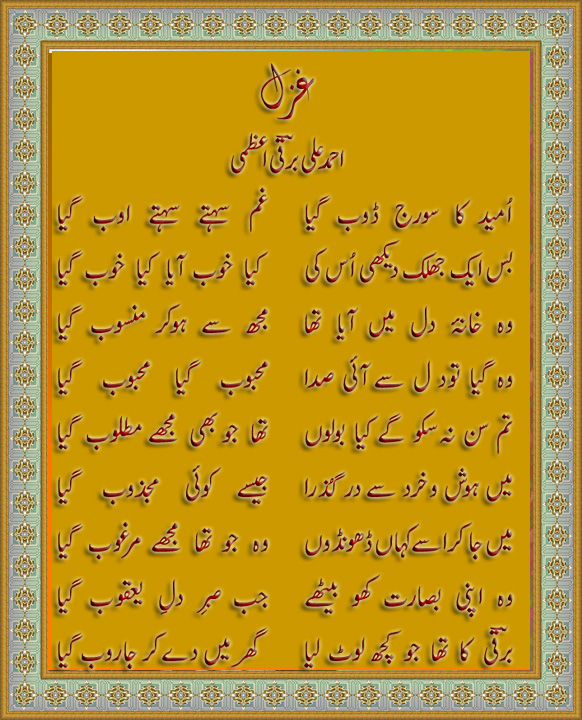 غزل
احمد علی برقیؔ اعظمی
اُمید کا سورج ڈوب گیا غم سہتے سہتے اوب گیا
بس ایک جھلک دیکھی اُس کی کیا خوب آیا کیا خوب گیا
وہ خانۂ دل میں آیا تھا مجھ سے ہوکر منسوب گیا
وہ گیا تود ل سے آئی صدا محبوب گیا محبوب گیا
تم سن نہ سکو گے کیا بولوں تھا جو بھی مجھے مطلوب گیا
میں ہوش و خرد سے در گذرا جیسے کوئی مجذوب گیا
میں جا کراسے کہاں ڈھونڈوں وہ جو تھا مجھے مرغوب گیا
وہ اپنی بصارت کھو بیٹھے جب صبرِ دلِ یعقوب گیا
برقیؔ کا تھا جو کچھ لوٹ لیا گھر میں دے کر جاروب گیا